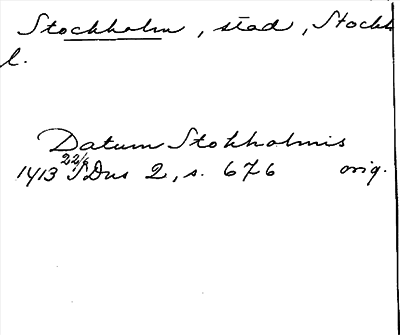 Stockholm, stad, Stockh
l.
Datum Stokholmis
1413 22/6 SDns 2, s. 676 orig.